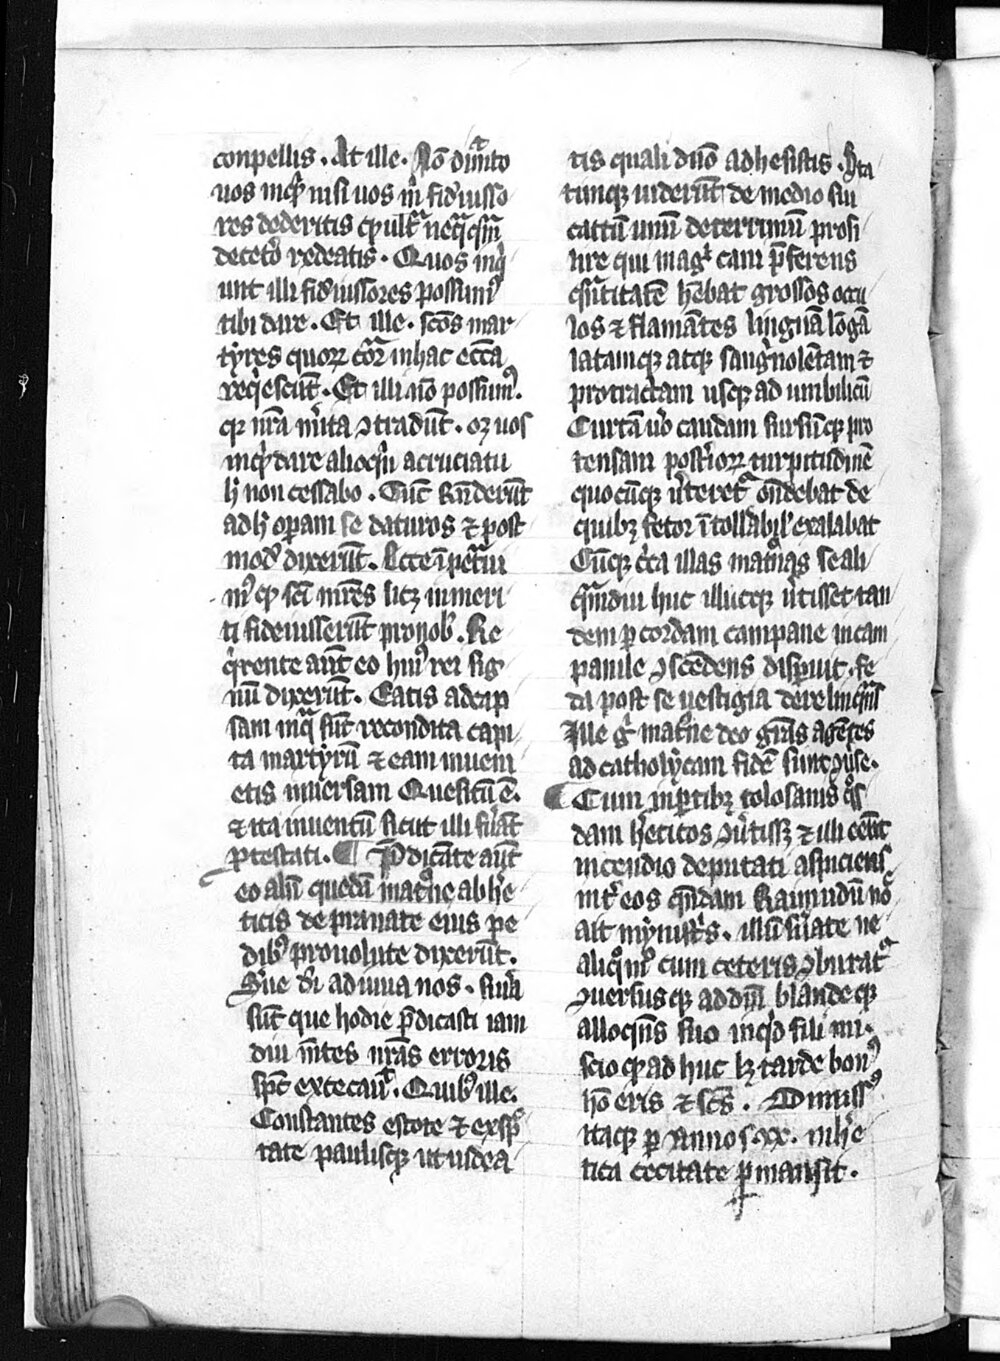 conpellis . At ille . Nō dimito
uos inq̇ nisi uos m̄ fid'iusso
res dederitis q̄ ult̄ neq̄q̄m
decet'o redeatis . Quos inq̇
unt illi fid'iussores possum'
tibi dare . Et ille . scōs mar
tyres quoꝝ cor̄a in hac eccā
reqͥescūt . Et illi nō possum'.
qꝛ nr̄a mīta ↄtradūt . oꝫ uos
inq̇ dare alioqͥn a cruciatu
h' non cessabo . Tūc r̄nderūt
ad h' oꝑam se daturos ⁊ post
mod' dixerūt . Ecce īpetͣui
m' qꝫ scī mr̄es licꝫ inmeri
ti fideiusserūt pro nob' . Re
qͥrente aūt eo hui' rei sig
nū dixerūt . Eatis ad cap
sam inq̇ sūt recondita capi
ta martyrū ⁊ eam inueni
etis inuersam Quesitū ē .
⁊ ita inuentū sicut illi fu'āt
ꝓtestati . ¶ P̄dicāte aūt
eo alī quedā matͦne ab h'e
ticis depͣuate eius pe
dib' prouolute dixerūt .
S'ue d'i adiuua nos . si u'a
sūt que hodie p̄dicasti iam
diu m̄tes nr̄as erroris
spc̄ excecau' . Quib' ille .
Constantes estote ⁊ exsp
tate paulisqꝫ ut uidea
tis quali dn̄o adhesistis . Sta
timqꝫ uiderūt de medio sui
cattū unū deterrimū prosi
lire qui magͥ cani p̄ferens
qͣntitatē h'ebat grossos ocu
los ⁊ flamātes linguā lōgā
latamqꝫ atqꝫ sanguͥnolētam ⁊
protractam usqꝫ ad umbilicū
Curtā u'o caudam sursūqꝫ pro
tensam post'ioꝝ turpitudinē
quocūqꝫ u'teret' ondebat de
quibꝫ fetor ītollabil' exalabat
Cūqꝫ c'ca illas matͦnas se ali
qͣmdiu huc illucqꝫ u'tisset tan
dem ꝑ cordam campane in cam
panile ↄscēdens disparuit . fe
da post se uestigia derelinqͣns
Ille gͦ matͦne deo gr̄as agētes
ad catholycam fidē sunt ↄu'se .
¶ Cum in ꝑtibꝫ tolosanis qͦs
dam h'eticos ↄu'tissꝫ ⁊ illi eēnt
incendio deputati aspiciens
int' eos qͣndam Raimūdū nōe
ait mynistͥs . illū su'ate ne
aliqͦm' cum ceteris ↄburatͬ
ↄuersusqꝫ ad eū blandeqꝫ
alloqͥns suo inqͥd fili mi .
scio qꝫ adhuc lꝫ tarde bon'
hō eris ⁊ scs̄ . Dimiss'
itaqꝫ ꝑ annos . xx . in h'e
tica cecitate ꝑmansit .